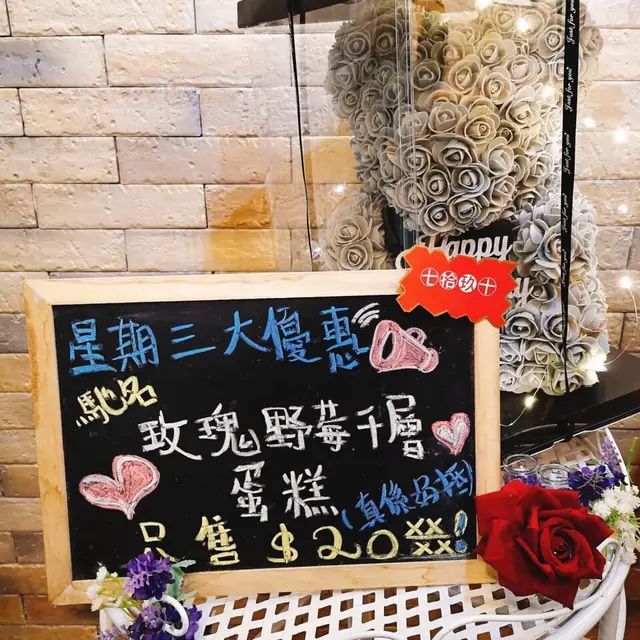 Just for you
Just for you
Just for you
Happy
七拾玖十
星期三大優惠
馳名
玫瑰野莓千層
蛋糕
(真係好抵)
只售 $20